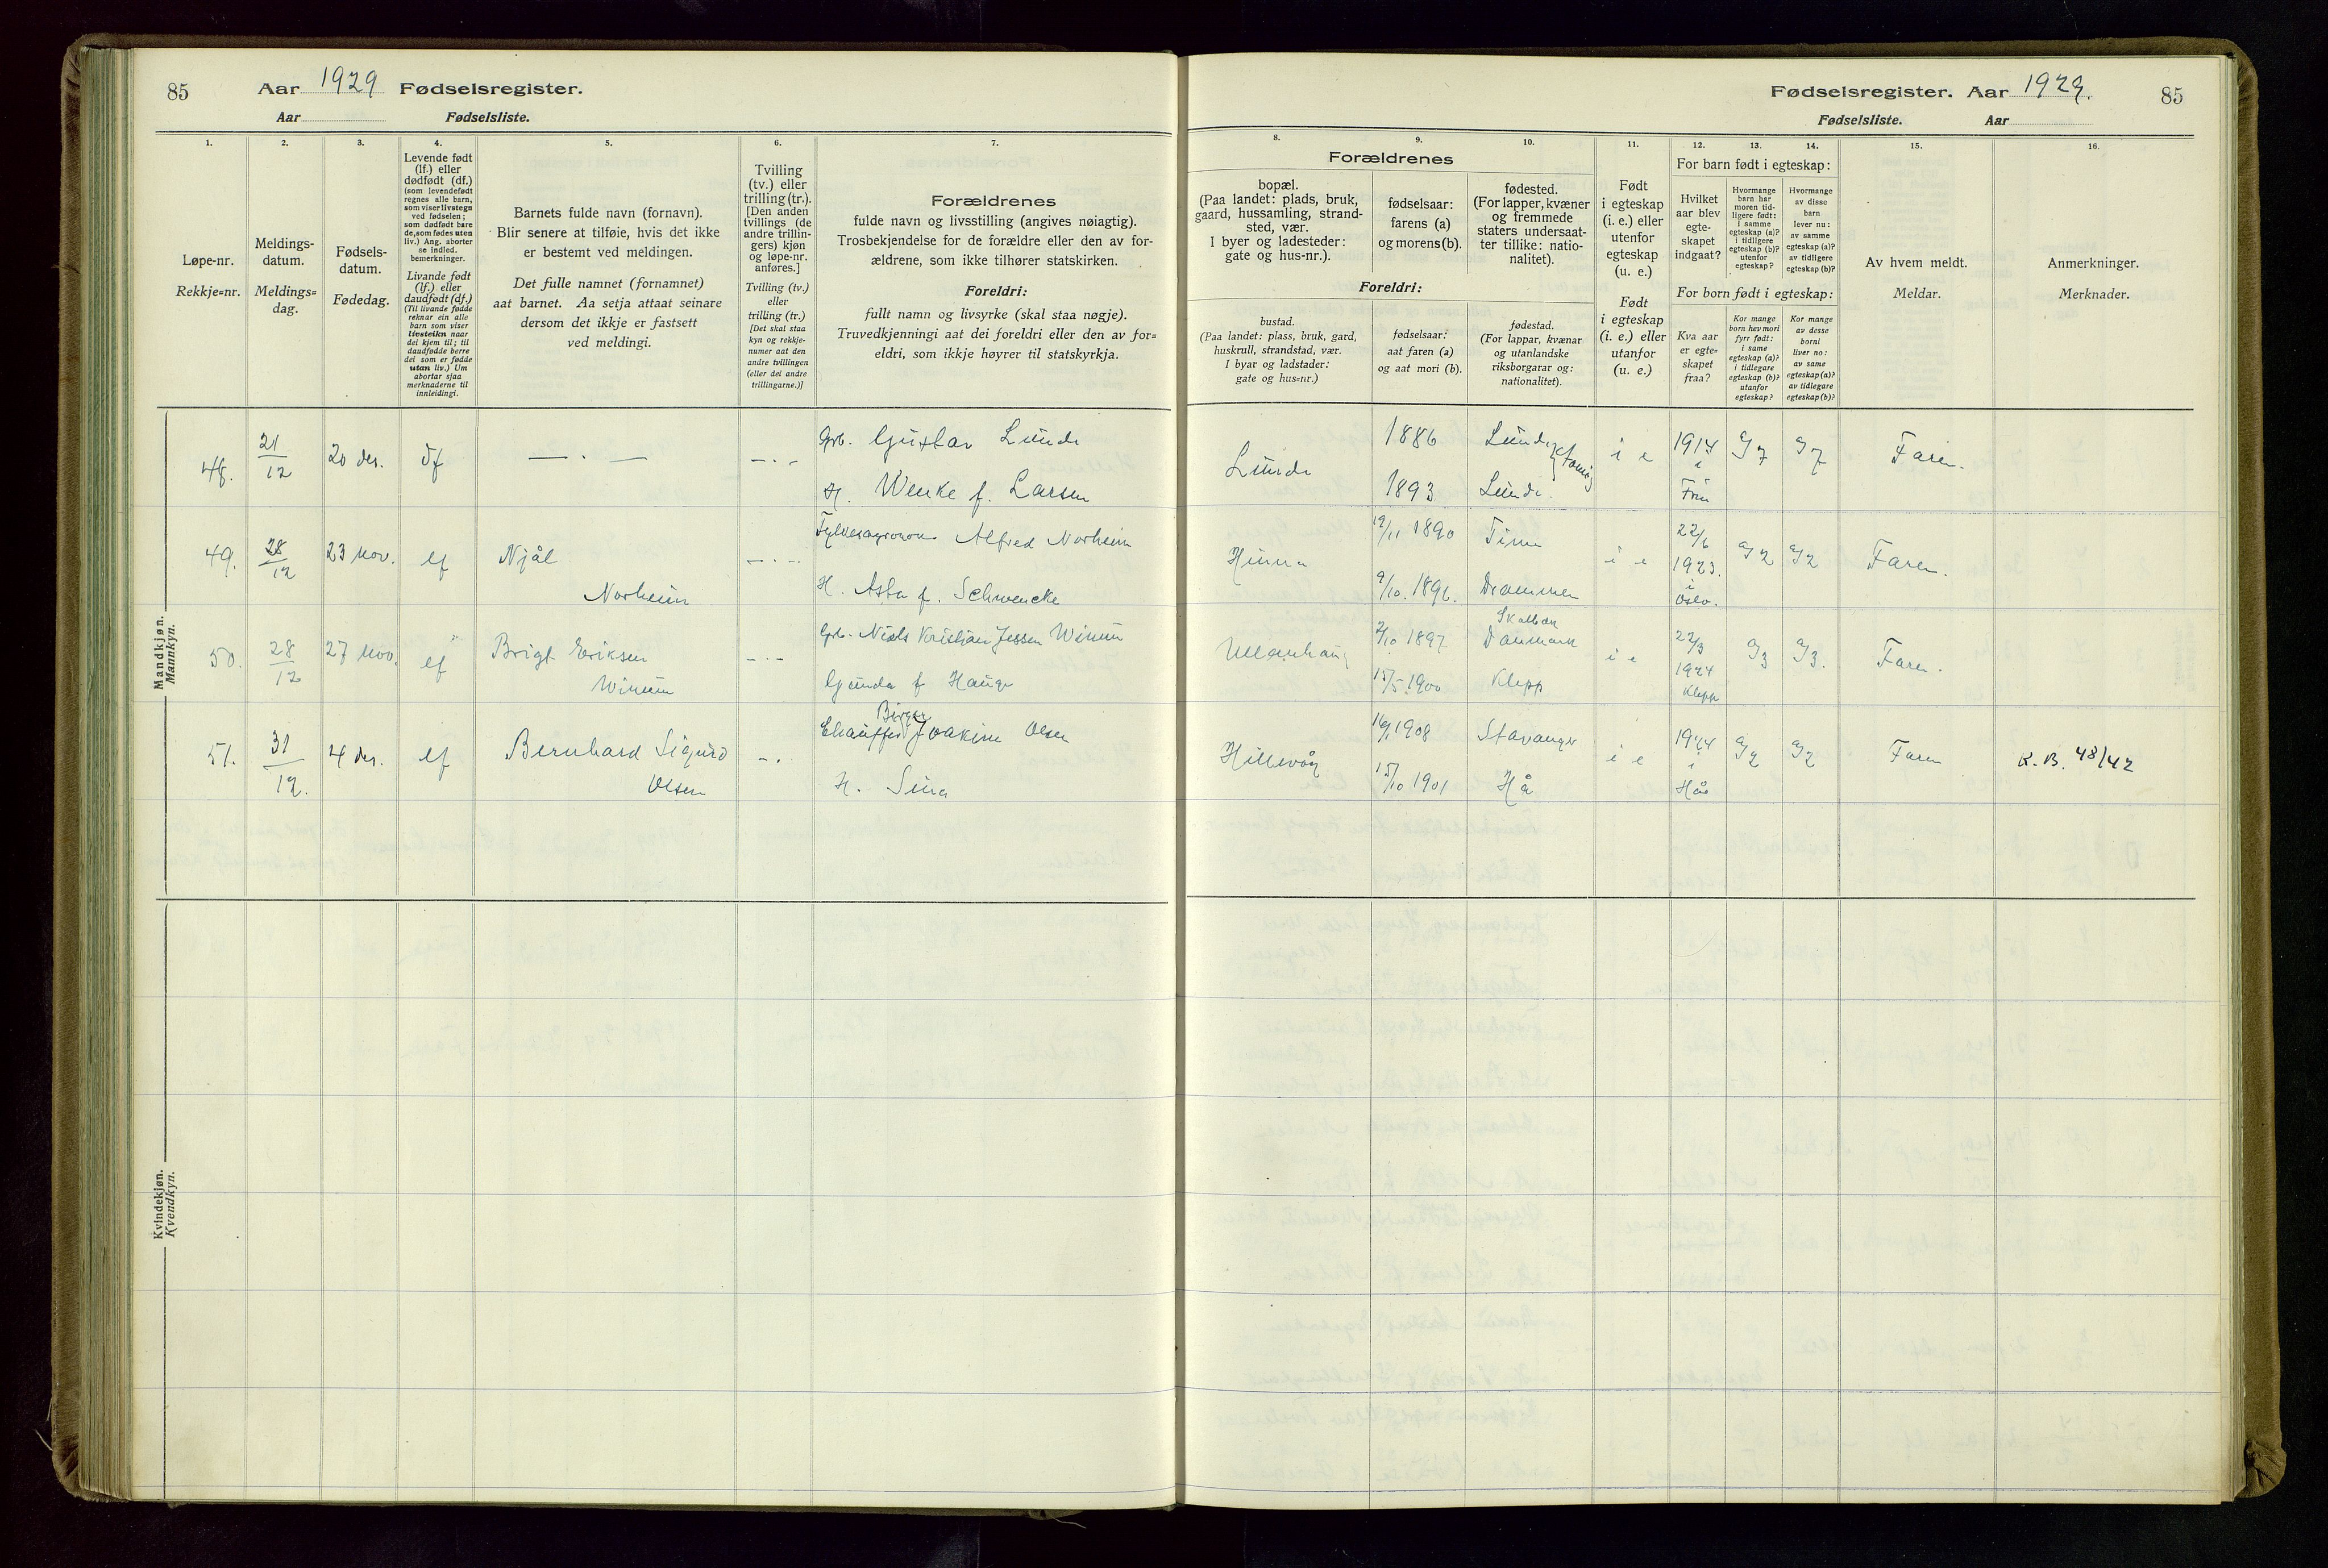 85
Aar 1929 Fødselsregister.
Aar Fødselsliste.
1.
2.
3.
4.
5.
6.
7.
Løpe-nr.
Rekkje=nr.
Meldings-
datum.
Meldings=
dag.
Fødsels-
datum.
Fødedag.
Levende født
(lf.) eller
dødfødt (df.)
(som levendefødt
regnes alle barn,
som viser livstegn
ved fødselen;
som dødfødt bare
de, som fødes uten
liv.) Ang. aborter
se indled.
bemerkninger.
Livande født
(lf.) eller
daudfødt (df.)
(Til livande fødde
reknar ein alle
barn som viser
livsteikn naar
dei kjem til; til
daudfødde berre
dei som er fødde
utan liv.) Um
abortar sjaa
merknaderne til
innleidingi.
Barnets fulde navn (fornavn).
Blir senere at tilføie, hvis det ikke
er bestemt ved meldingen.
Det fulle namnet (fornamnet)
aat barnet. Aa setja attaat seinare
dersom det ikkje er fastsett
ved meldingi.
Tvilling
(tv.) eller
trilling (tr.).
[Den anden
tvillings (de
andre trillin-
gers) kjøn
og løpe-nr.
anføres.]
Tvilling (tv.)
eller
trilling (tr.)
[Det skal staa
kyn og rekkje-
numer aat den
andre tvillingen
(eller dei andre
trillingarne.)]
Forældrenes
fulde navn og livsstilling (angives nøiagtig).
Trosbekjendelse for de forældre eller den av for-
ældrene, som ikke tilhører statskirken.
Foreldri:
fullt namn og livsyrke (skal staa nøgje).
Truvedkjenningi aat dei foreldri eller den av for=
eldri, som ikkje høyrer til statskyrkja.
Mandkjøn.
Mannkyn.
48.
21/12
20 des.
df
— . —
— . -
Grb. Gustav Lunde
H. Wenke f. Larsen
49.
28/12
23 nov.
lf
Njål
Norheim
— . -
Fylkesagronom Alfred Norheim
H. Asta f. Schwencke
50.
28/12
27 nov.
lf
Brigt Eriksen
— . -
Grb. Niels Kristian Jessen
Gunda f Hauge
51.
31/12.
4 des.
lf
Bernhard Sigurd
Olsen
- .
Birger
Chauffør Joakim Olsen
H. Sina
Kvindekjøn.
Kvendkyn.
Fødselsregister. Aar 1929.
85
Fødselsliste. Aar
8.
9.
10.
11.
12.
13.
14.
15.
16.
Forældrenes
bopæl.
(Paa landet: plads, bruk,
gaard, hussamling, strand-
sted, vær.
I byer og ladesteder:
gate og hus-nr.).
fødselsaar:
farens (a)
og morens (b).
fødested.
(For lapper, kvæner
og fremmede
staters undersaat-
ter tillike: natio-
nalitet).
Foreldri:
bustad.
(Paa landet: plass, bruk, gard,
huskrull, strandstad, vær.
I byar og ladstader:
gate og hus=nr.)
fødselsaar:
aat faren (a)
og aat mori (b).
fødestad.
(For lappar, kvænar
og utanlandske
riksborgarar og:
nationalitet).
Født
i egteskap
(i. e.) eller
utenfor
egteskap
(u. e.)
Født
i egteskap
(i. e.) eller
utanfor
(u. e.)
For barn født i egteskap:
Hvilket
aar blev
egte-
skapet
indgaat?
Hvormange
barn har
moren tid-
ligere født:
i samme
egteskap (a)?
i tidligere
egteskap (b)?
utenfor
egteskap?
Hvormange
av disse
barn
lever nu:
av samme
egteskap (a)?
av tidligere
egteskap (b)?
For born født i egteskap:
Kva aar
er egte=
skapet
fraa?
Kor mange
born hev mori
fyrr født:
i same
egteskap (a)?
i tidlegare
egteskap (b)?
utanfor
egteskap?
Kor mange
av desse
borni
liver no:
av same
egteskap (a)?
av tidlegare
egteskap (b)?
Av hvem meldt.
Meldar.
Anmerkninger.
Merknader.
Lunde
1886
1893
Lunde
Lunde.
i e
1914
i
a/7
a/7
Faren.
Hinna
19/11 1890
9/10. 1896.
Time
Drammen
i e
22/6
1923.
i
Oslo.
a/2
a/2
Faren.
Ullanhaug
2/10 1897
15/5. 1900
Danmark
Klepp
i e
22/3
1924
Klepp
a/3
a/3.
Faren.
Hillevåg
1908
15/10 1901
Stavanger
Hå
i e
1924
i
Hå
a/2
a/2
Faren
K.B. 48/42